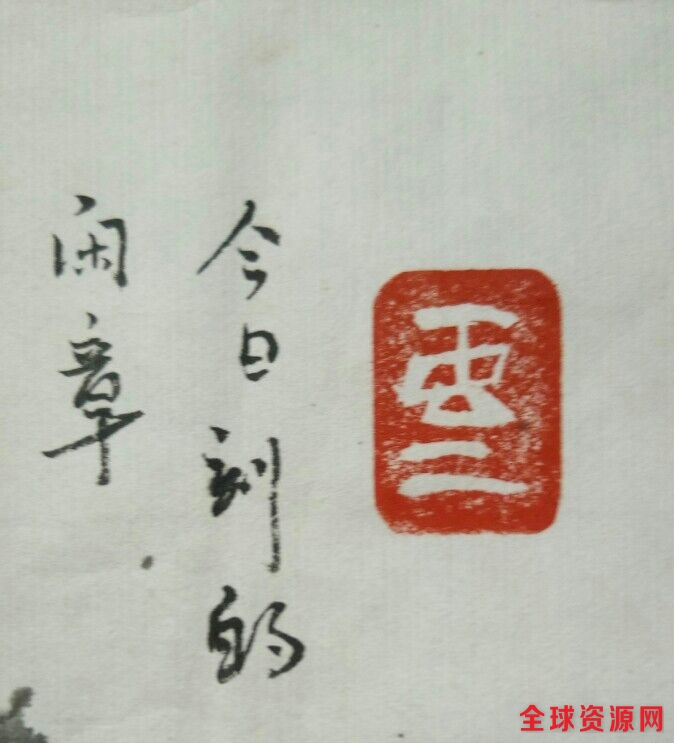 今日刻的
闲章
全球资源网